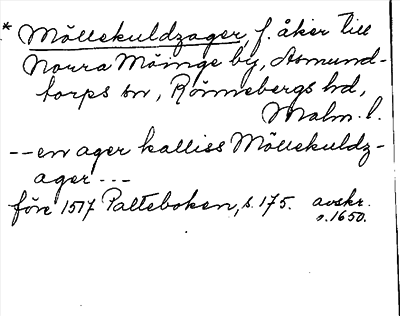 * Möllekuldzager, f. åker till
Norra Möinge by, Asmund-
torps sn, Rönnebergs hd,
Malm. l.
-- en ager kalliss Möllekuldz-
ager ---
före 1517 Palteboken, s. 175. avskr.
o. 1650.